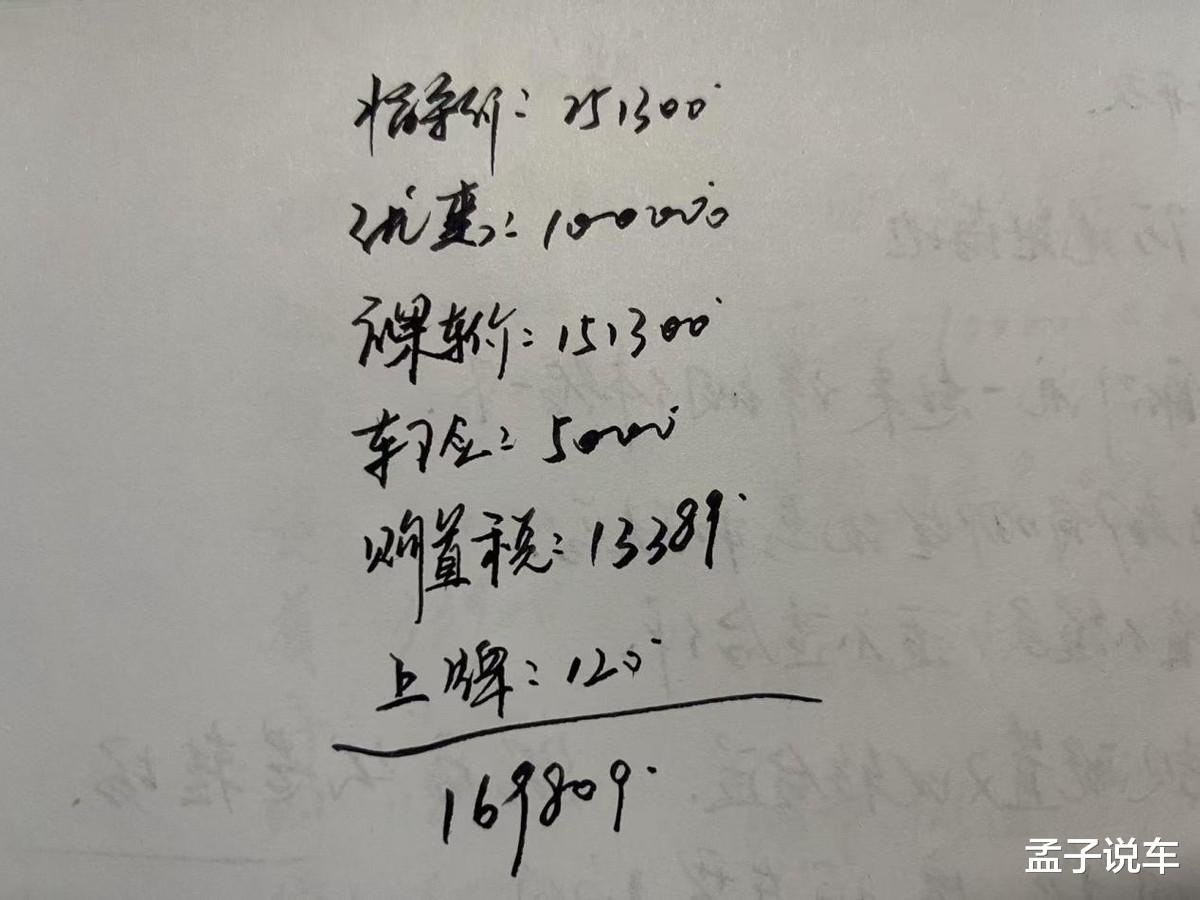 指导价：251300
优惠：100000
裸车价：151300
车险：5000
购置税：13389
上牌：120
169809
孟子说车